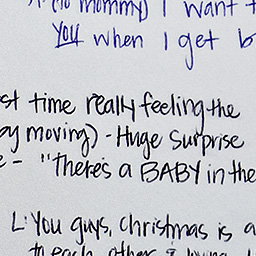 (to mommy) I want t
You when I get b
st time really feeling the
ay moving) - Huge Surprise
e - "There's a BABY in the
L: You guys, Christmas is a
to each other & loving